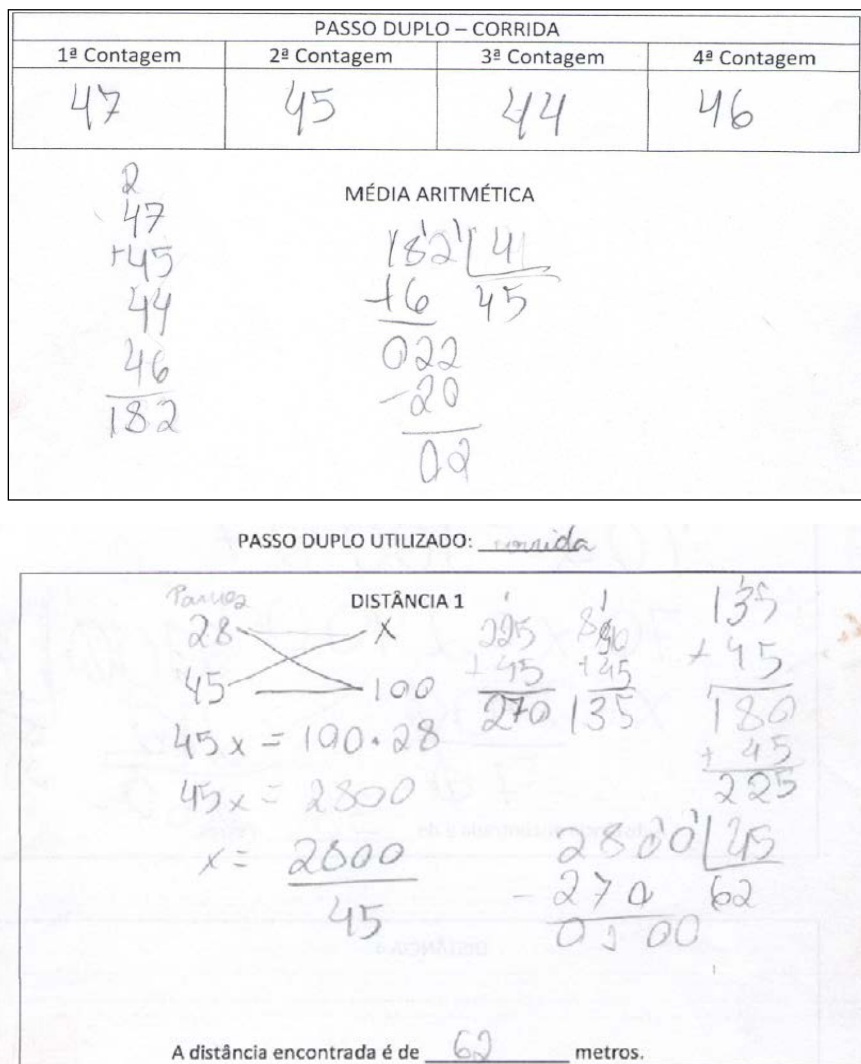 PASSO DUPLO – CORRIDA
1ª Contagem 2ª Contagem 3ª Contagem 4ª Contagem
47 45 44 46
MÉDIA ARITMÉTICA
2
47
+45
44
46
182
182 | 4
16 45
022
-20
02
PASSO DUPLO UTILIZADO: corrida
DISTÂNCIA 1
28 x
45 100
45x = 100.28
45x = 2800
x = 2800
45
225
+ 45
270
90
+45
135
135
+ 45
180
+ 45
225
2800 | 45
- 270 62
0100
A distância encontrada é de 62 metros.